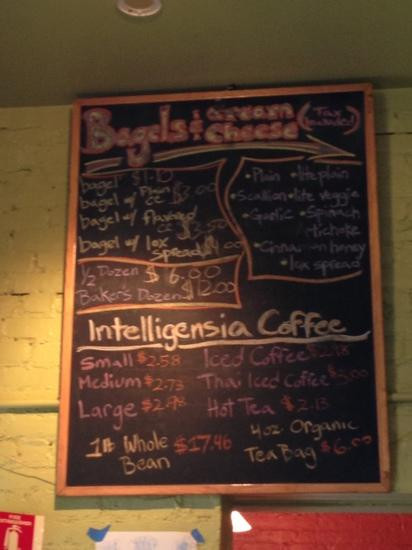 Bagels & cream cheese (Tax included)
bagel $1.10
bagel w/ Plain cc $3.00
bagel w/ flavored cc $3.50
bagel w/ lox spread $4.00
1/2 Dozen $6.00
Baker's Dozen $12.00
•Plain •lite plain
•Scallion •lite veggie
•Garlic •Spinach
Artichoke
•Cinnamon honey
•lox spread
Intelligensia Coffee
Small $2.58
Medium $2.73
Large $2.98
1lb Whole Bean $17.46
Iced Coffee
Thai Iced Coffee $3.00
Hot Tea $2.13
4oz. Organic
Tea Bag $6.00